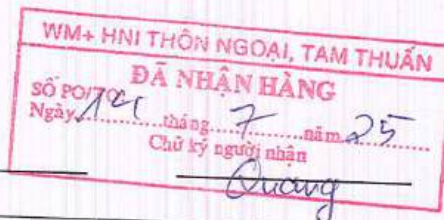 WM+ HNI THÔN NGOẠI, TAM THUẤN
ĐÃ NHẬN HÀNG
SỐ PO/TO
Ngày 14 tháng 7 năm 25
Chữ ký người nhận
Quang